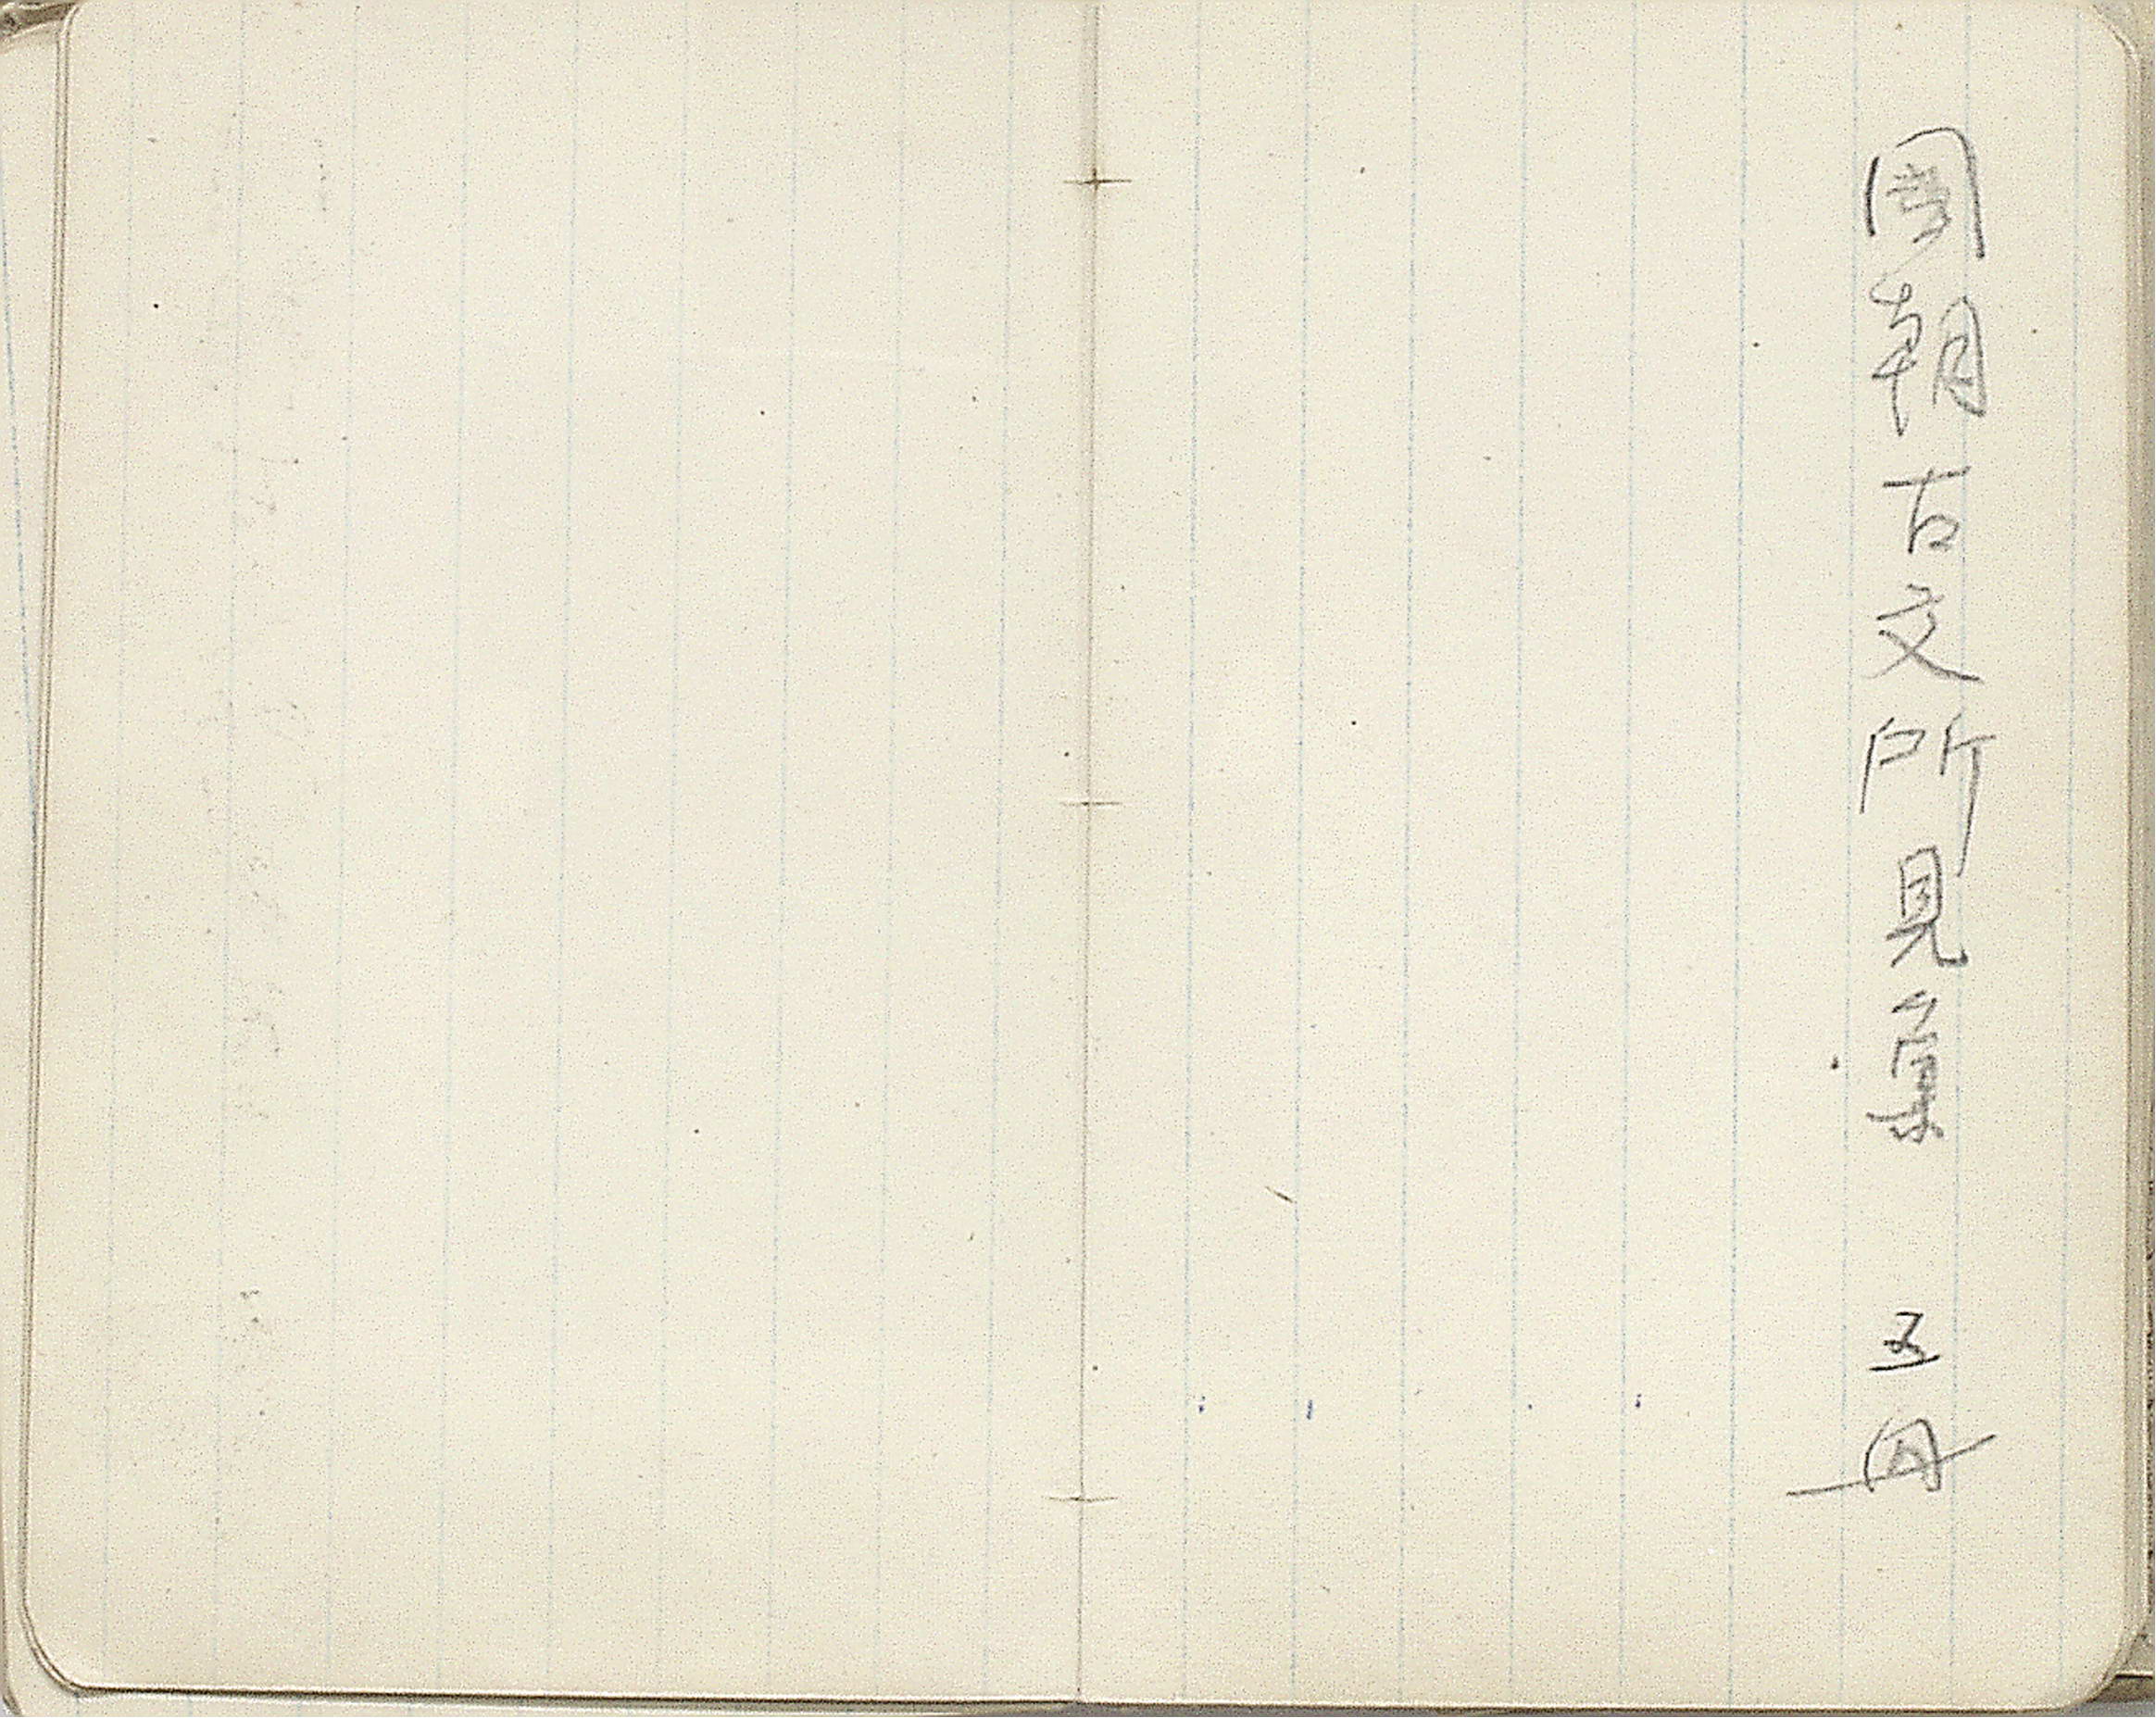 國朝古文所見集 五冊